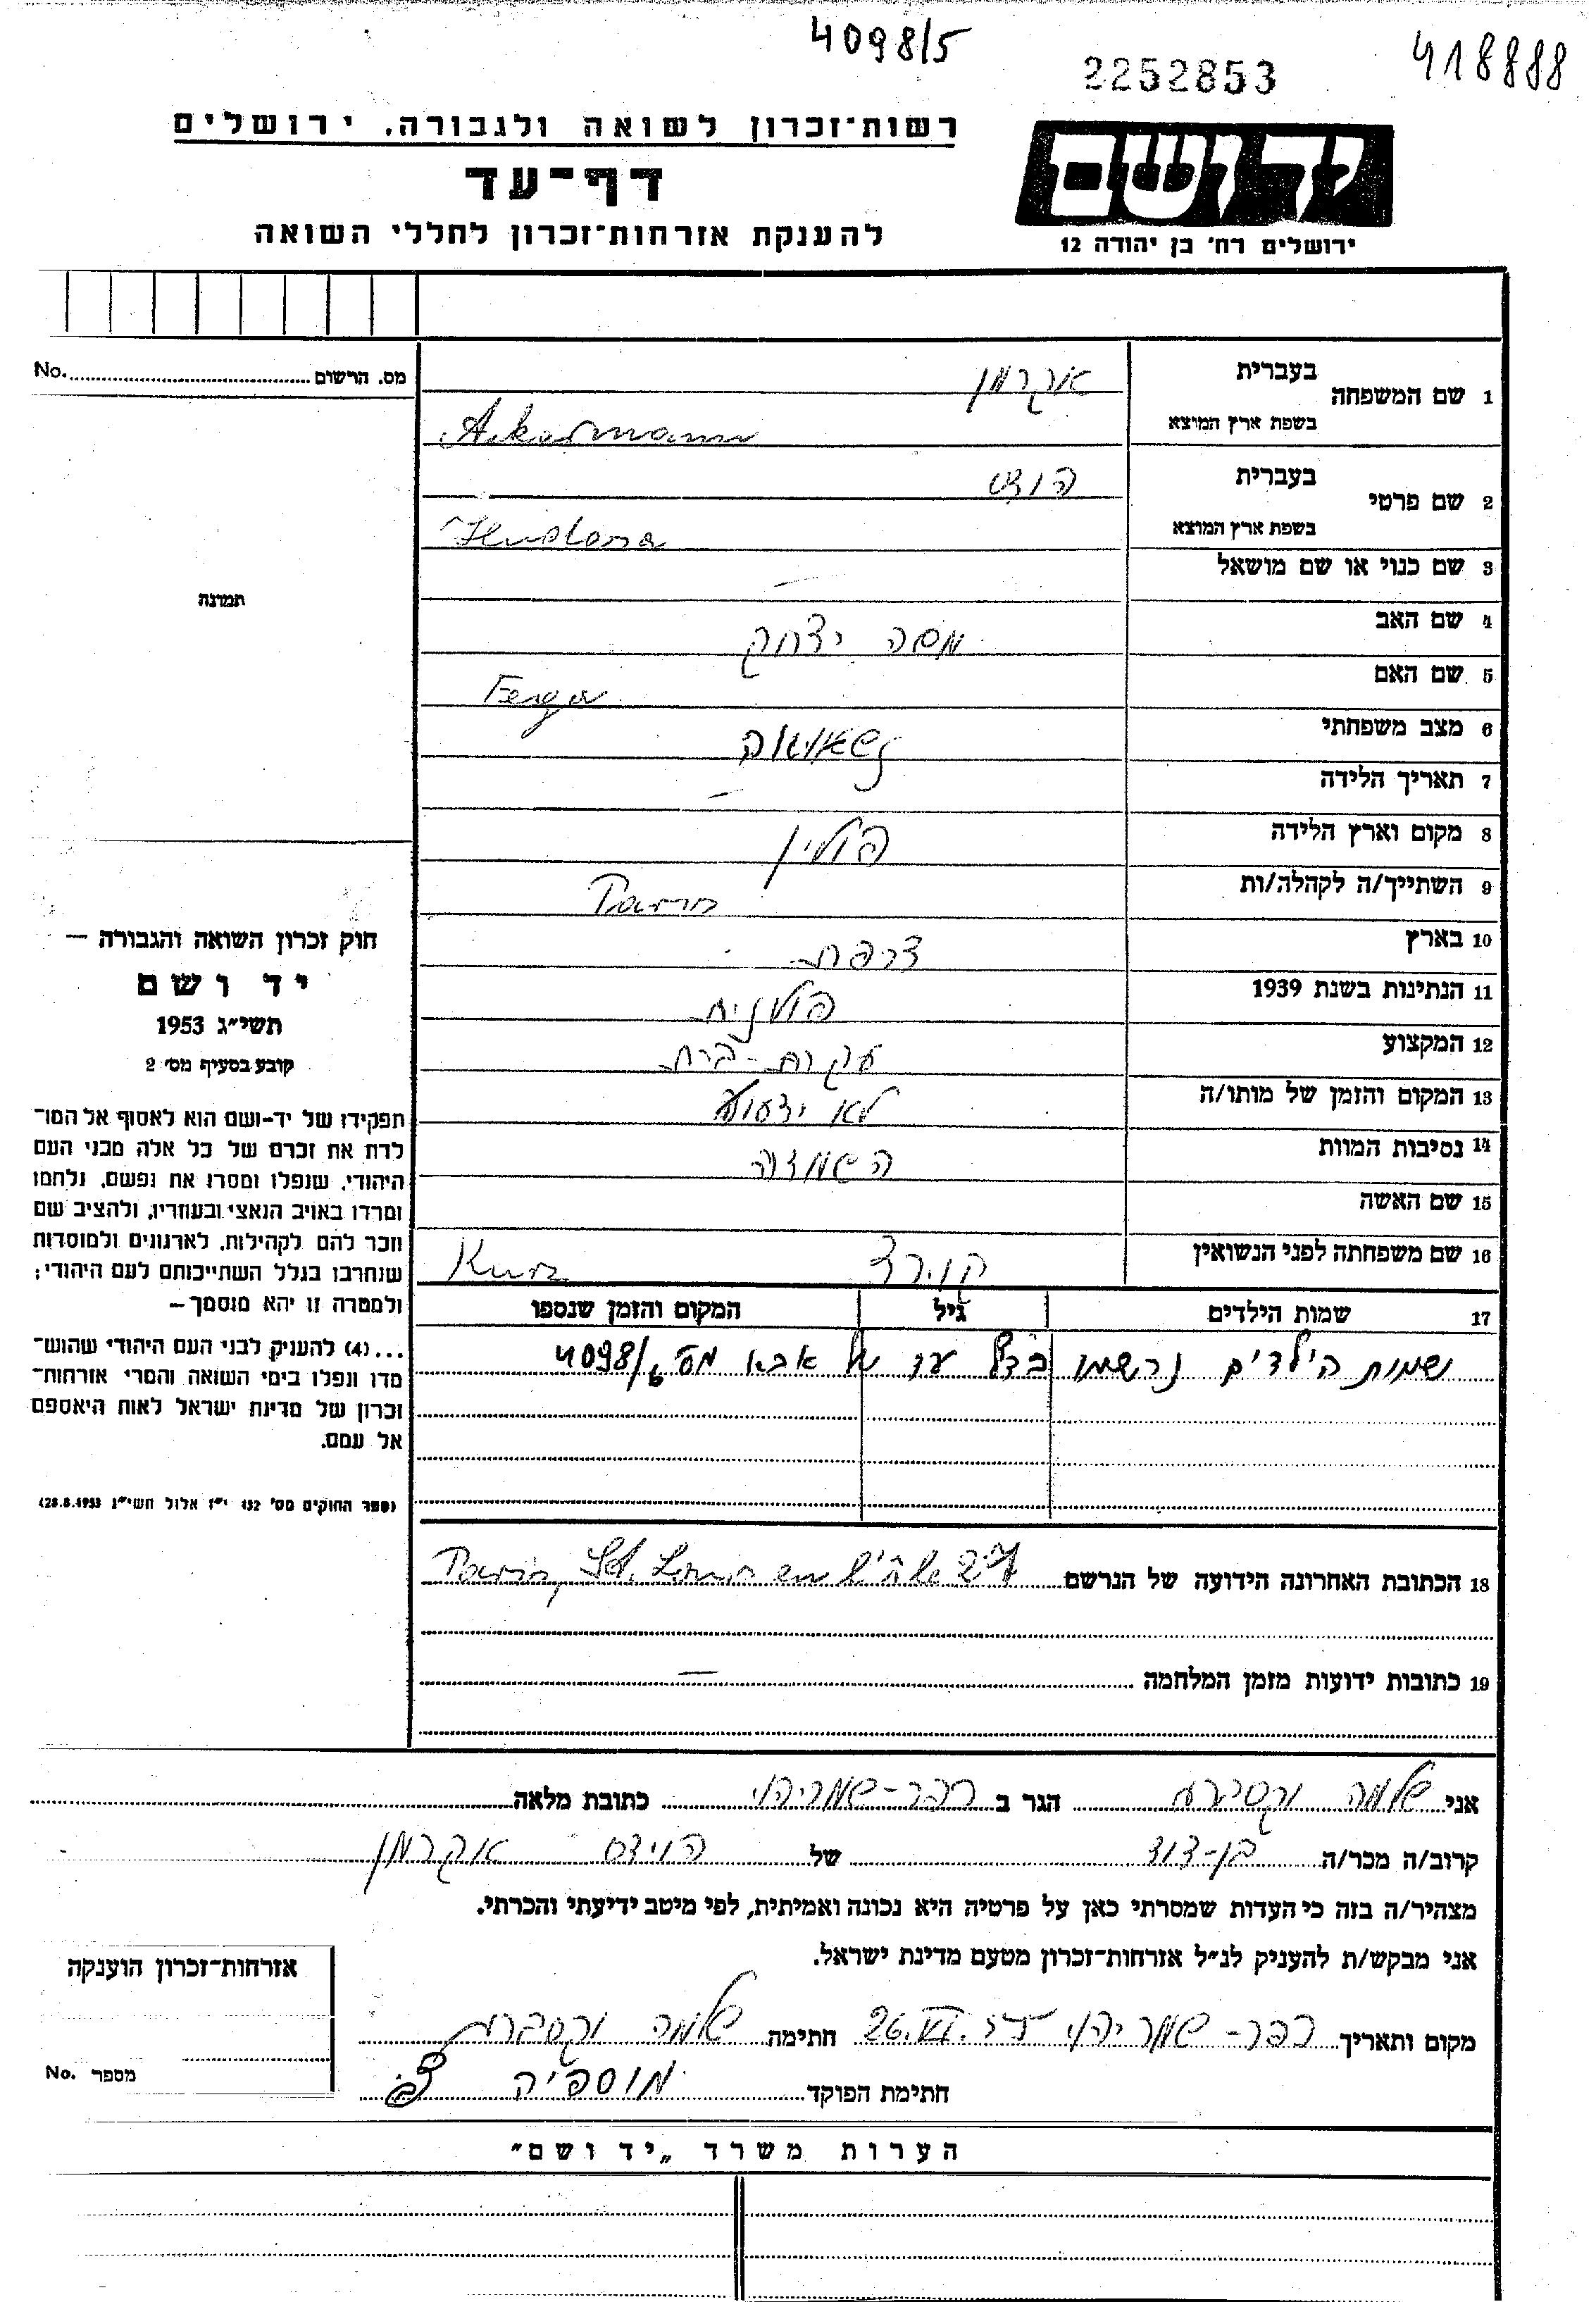 4098/5
2252853
418888
רשות־זכרון לשואה ולגבורה, ירושלים
דף־עד
להענקת אזרחות־זכרון לחללי השואה
יד ושם
ירושלים רח' בן יהודה 12
מס. הרשום No.
1 שם המשפחה
בעברית אקרמן
בשפת ארץ המוצא Akermann
2 שם פרטי
בעברית
בשפת ארץ המוצא
3 שם כנוי או שם מושאל —
תמונה
4 שם האב משה יצחק
5 שם האם Fejga
6 מצב משפחתי נשואה
7 תאריך הלידה —
8 מקום וארץ הלידה פולין
9 השתייך/ה לקהלה/ות Paris
10 בארץ צרפת
11 הנתינות בשנת 1939 פולנית
12 המקצוע עקרת-בית
13 המקום והזמן של מותו/ה לא ידוע
14 נסיבות המוות השמדה
15 שם האשה
16 שם משפחתה לפני הנשואין קורץ Kurz
17 שמות הילדים גיל המקום והזמן שנספו
שמות הילדים נרשמו בדף עד של אבא מס' 4098/6
18 הכתובת האחרונה הידועה של הנרשם Paris, St. Louis en l'île 27
19 כתובות ידועות מזמן המלחמה —
חוק זכרון השואה והגבורה —
יד ושם
תשי"ג 1953
קובע בסעיף מס' 2
תפקידו של יד-ושם הוא לאסוף אל המו־
לדת את זכרם של כל אלה מבני העם
היהודי, שנפלו ומסרו את נפשם, נלחמו
ומרדו באויב הנאצי ובעוזריו, ולהציב שם
וזכר להם לקהילות, לארגונים ולמוסדות
שנחרבו בגלל השתייכותם לעם היהודי;
ולמטרה זו יהא מוסמך—
...(4) להעניק לבני העם היהודי שהוש־
מדו ונפלו בימי השואה והמרי אזרחות־
זכרון של מדינת ישראל לאות היאספם
אל עמם.
(ספר החוקים מס' 132 י"ז אלול תשי"ג 28.8.1953)
אני שלמה הגר ב כפר-שמריהו כתובת מלאה
קרוב/ה מכר/ה בן-דוד של אקרמן
מצהיר/ה בזה כי העדות שמסרתי כאן על פרטיה היא נכונה ואמיתית, לפי מיטב ידיעתי והכרתי.
אני מבקש/ת להעניק לנ"ל אזרחות־זכרון מטעם מדינת ישראל.
מקום ותאריך כפר-שמריהו 26.VI. חתימה שלמה
חתימת הפוקד
אזרחות-זכרון הוענקה
מספר No.
הערות משרד „יד ושם"